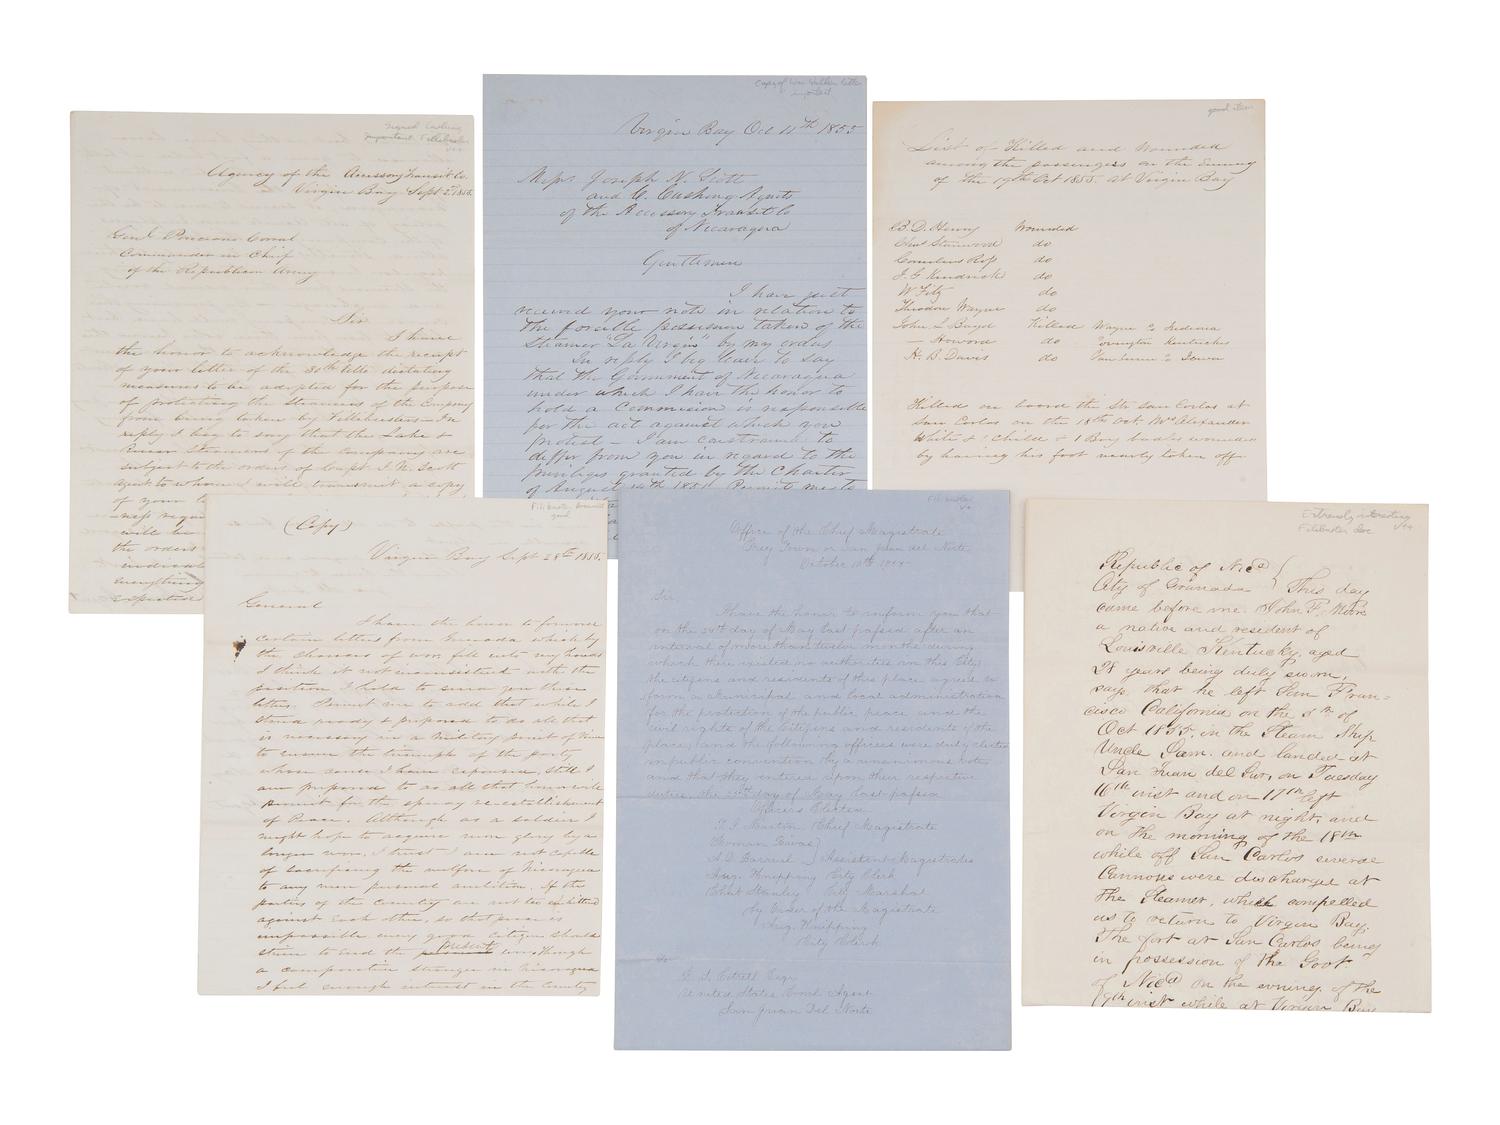 Signed Cushing
important Filibuster
Agency of the Accessory Transit Co.
Virgin Bay Sept 2d 1855.
Genl Ponciano Corral
Commander in Chief
of the Republican Army
Sir
I have
the honor to acknowledge the receipt
of your letter of the 30th ulto dictating
measures to be adopted for the purpose
of protecting the steamers of the Company
from being taken by Fillibusters — In
reply I beg to say that the Lake &
River Steamers of the Company are
subject to the orders of Capt J. N. Scott
agent to whom I will transmit a copy
of your
will be
the orders
indicate
everything
Copy of Wm Walker letter
important
Virgin Bay Oct 11th 1855
Messrs Joseph N. Scott
and C. Cushing Agents
of the Accessory Transit Co
of Nicaragua
Gentlemen
I have just
received your note in relation to
the forcible possession taken of the
Steamer "La Virgin" by my orders
In reply I beg leave to say
that the Government of Nicaragua
under which I have the honor to
hold a Commission is responsible
for the act against which you
protest — I am constrained to
differ from you in regard to the
privileges granted by the Charter
of August 14th 1851. Permit me to
good item
List of Killed and Wounded
among the passengers on the Evening
of the 19th Oct 1855. at Virgin Bay
B. D. Henry Wounded
Chas Stanwood do
Cornelius Ross do
J. G. Kendrick do
W Fitz do
Theodore Wayne do
John L Boyd Killed Wayne Co Indiana
— Howard do Covington Kentuckee
H. B. Davis do Van Buren Co Iowa
Killed on board the Str San Carlos at
San Carlos on the 18th Oct. Mrs Alexander
White & 1 Child & 1 Boy besides wounded
by having his foot nearly taken off
Filibuster
good
(Copy)
Virgin Bay Sept 28th 1855.
General
I have the honor to forward
certain letters from Granada which by
the chances of war, fell into my hands
I think it not inconsistent with the
position I hold to send you these
letters. Permit me to add that while I
stand ready & prepared to do all that
is necessary in a military point of view
to ensure the triumph of the party
whose cause I have espoused, still I
am prepared to do all that honor will
permit for the speedy re-establishment
of Peace. Although as a soldier I
might hope to acquire more glory by a
longer war, I trust I am not capable
of sacrificing the welfare of Nicaragua
to any mere personal ambition. If the
parties of the Country are not too embittered
against each other, so that peace is
impossible every good citizen should
strive to end the present war, though
a comparative stranger in Nicaragua
I feel enough interest in the Country
Filibuster
Office of the Chief Magistrate
Grey Town or San Juan del Norte
October 10th 1855
Sir,
I have the honor to inform you that
on the 24th day of May last passed after an
interval of more than twelve months during
which there existed no authorities in this City
the citizens and residents of this place agreed to
form a Municipal and local administration
for the protection of the public peace and the
civil rights of the Citizens and residents of the
place, and the following officers were duly elected
in public convention by a unanimous vote
and that they entered upon their respective
duties, the 25th day of May last passed
Officers Elected
T. J. Martin, Chief Magistrate
Herman
Assistant Magistrates
Aug. Knipping City Clerk
Chas Stanley City Marshal
by Order of the Magistrate
Aug. Knipping
City Clerk
To
B. S. Cotrell Esqr
United States Coml Agent
San Juan Del Norte
Extremely interesting
Filibuster doc
Republic of Nica
City of Granada } This day
came before me. John F. Moore
a native and resident of
Louisville Kentucky, aged
28 years being duly sworn,
says, that he left San Fran=
cisco California on the 5th of
Oct 1855. in the Steam Ship
Uncle Sam. and landed at
San Juan del Sur, on Tuesday
16th inst and on 17th left
Virgin Bay at night, and
on the morning of the 18th
while off San Carlos several
Cannons were discharged at
the Steamer, which compelled
us to return to Virgin Bay.
The fort at San Carlos being
in possession of the Govt
of Nica On the evening of the
19th inst while at Virgin Bay